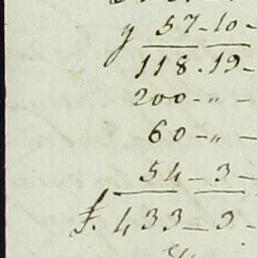 y 57-10-
118.19-
200-„ -
60-„ -
54-3-
f. 433-3-